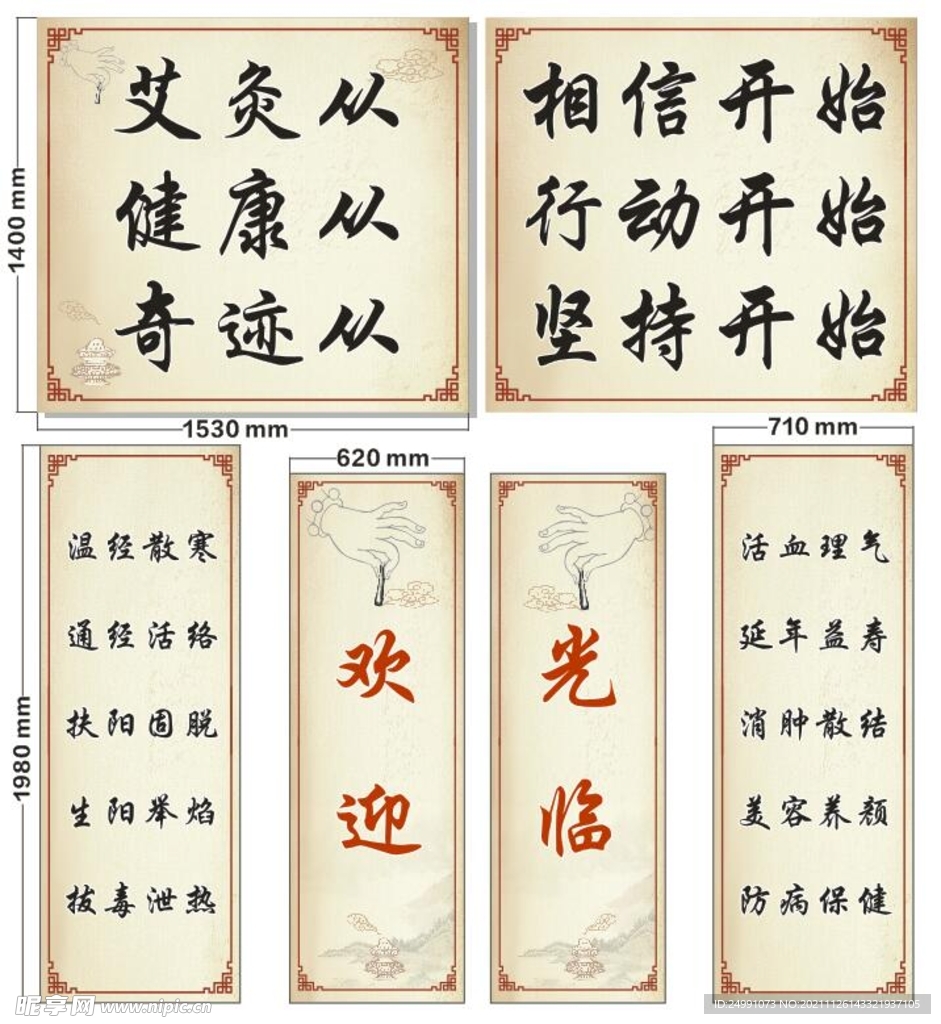 艾灸从
健康从
奇迹从
相信开始
行动开始
坚持开始
1400 mm
1530 mm
620 mm
710 mm
1980 mm
温经散寒
通经活络
扶阳固脱
生阳举焰
拔毒泄热
欢
迎
光
临
活血理气
延年益寿
消肿散结
美容养颜
防病保健
昵享网 www.nipic.cn
ID:24991073 NO:20211126143321937105